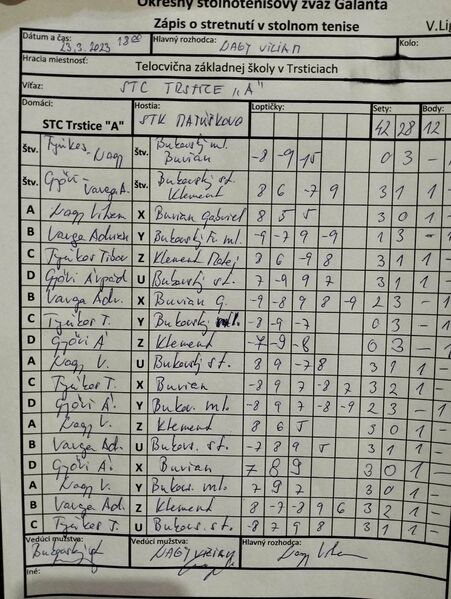 Okresný stolnotenisový zväz Galanta
Zápis o stretnutí v stolnom tenise V.Lig
Dátum a čas: 23.3.2023 18:00 Hlavný rozhodca: NAGY VILIAM Kolo:
Hracia miestnosť: Telocvična základnej školy v Trsticiach
Víťaz: STC TRSTICE "A"
Domáci: Hostia: Loptičky: Sety: Body:
STC Trstice "A" STK MATÚŠKOVO 42 28 12
Štv. Nagy Štv. Bukovský ml. Buvian -8 -9 15 0 3 -
Štv. Győri - Varga A. Štv. Bukovský st. Klement 8 6 -7 9 3 1 1
A Nagy Viliam X Buvian Gabriel 8 5 5 3 0 1
B Varga Adrian Y Bukovský Fr. ml. -9 -7 9 -9 1 3 -
C Tibor Z Klement Matej 8 6 -9 8 3 1 1
D Győri Árpád U Bukovský st. 7 -9 9 7 3 1 1
B Varga Adr. X Buvian G. -9 -8 9 8 -9 2 3 -
C T. Y Bukovský ml. -8 -9 -7 0 3 -
D Győri Á. Z Klement -7 -9 -8 0 3 -
A Nagy V. U Bukovský st. 8 9 -7 8 3 1 1
C T. X Buvian -8 9 7 -8 7 3 2 1
D Győri Á. Y Bukov. ml. -8 9 7 -8 -9 2 3 -
A Nagy V. Z Klement 8 6 5 3 0 1
B Varga Adr. U Bukov. st. -7 8 9 5 3 1 1
D Győri Á. X Buvian 7 8 9 3 0 1
A Nagy V. Y Bukov. ml. 7 9 7 3 0 1
B Varga Adr. Z Klement 8 -7 -8 9 6 3 2 1
C T. U Bukov. st. -8 7 9 8 3 1 1
Vedúci mužstva: Vedúci mužstva: Hlavný rozhodca:
Bukovský NAGY VILIAM
Iné: